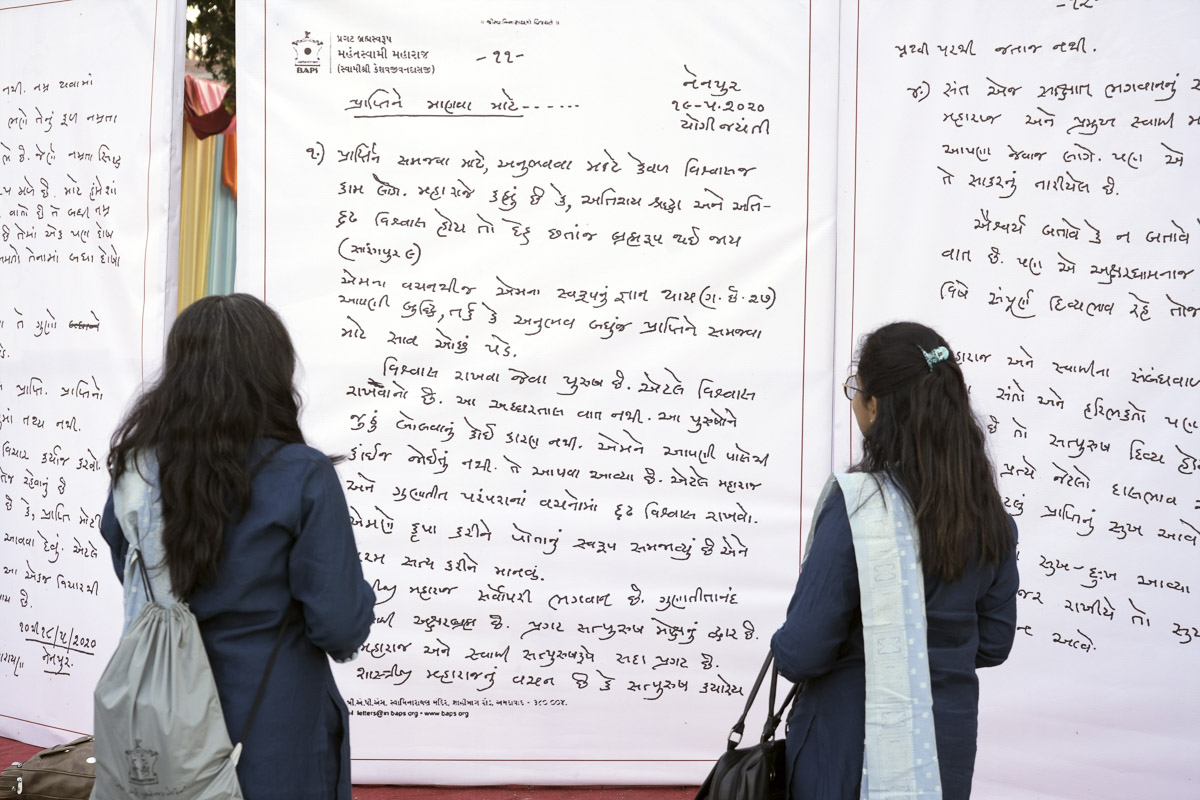 નથી. નમ્ર થવામાં
તેનું મૂળ નમ્રતા
છે. જેણે નમ્રતા
મળે છે. માટે હંમેશાં
વાતો છે તે બધી નમ્ર
છે તેમાં એક પણ દોષ
તેનામાં બધા દોષો
તે ગુણો
પ્રાપ્તિ. પ્રાપ્તિનો
તથ્ય નથી.
વિચાર કર્યાજ કરવો.
રહેવાનું છે
છે કે, પ્રાપ્તિ મોટી
આવવા દેવું. એટલે
આ એકજ વિચારથી
છે.
૧૮/૫/૨૦૨૦
નેનપુર.
॥ શ્રીસ્વામિનારાયણો વિજયતે ॥
BAPS
પ્રગટ બ્રહ્મસ્વરૂપ
મહંતસ્વામી મહારાજ
(સ્વામીશ્રી કેશવજીવનદાસજી)
-૧૧-
નેનપુર
૧૯-૫-૨૦૨૦
યોગી જયંતી
પ્રાપ્તિને માણવા માટે------
૧.) પ્રાપ્તિને સમજવા માટે, અનુભવવા માટે કેવળ વિશ્વાસજ
કામ લાગે. મહારાજે કહ્યું છે કે, અતિશય શ્રદ્ધા અને અતિ-
દૃઢ વિશ્વાસ હોય તો દેહ છતાંજ બ્રહ્મરૂપ થઈ જાય
(સારંગપુર ૯)
એમના વચનથીજ એમના સ્વરૂપનું જ્ઞાન થાય (ગ.છે.૨૭)
આપણી બુદ્ધિ, તર્ક કે અનુભવ બધુંજ પ્રાપ્તિને સમજવા
માટે સાવ ઓછું પડે.
વિશ્વાસ રાખવા જેવા પુરુષ છે. એટલે વિશ્વાસ
રાખવાનો છે. આ અધ્ધરતાલ વાત નથી. આ પુરુષોને
જુઠું બોલવાનું કોઈ કારણ નથી. એમને આપણી પાસેથી
કાંઈજ જોઈતું નથી. તે આપવા આવ્યા છે. એટલે મહારાજ
અને ગુણાતીત પરંપરાનાં વચનોમાં દૃઢ વિશ્વાસ રાખવો.
એમણે કૃપા કરીને પોતાનું સ્વરૂપ સમજાવ્યું છે એને
પરમ સત્ય કરીને માનવું.
મહારાજ સર્વોપરી ભગવાન છે. ગુણાતીતાનંદ
અક્ષરબ્રહ્મ છે. પ્રગટ સત્પુરુષ મોક્ષનું દ્વાર છે.
મહારાજ અને સ્વામી સત્પુરુષરૂપે સદા પ્રગટ છે.
શાસ્ત્રીજી મહારાજનું વચન છે કે સત્પુરુષ ક્યારેય
બી.એ.પી.એસ. સ્વામિનારાયણ મંદિર, શાહીબાગ રોડ, અમદાવાદ - ૩૮૦ ૦૦૪.
letters@in.baps.org • www.baps.org
-૧૨-
પૃથ્વી પરથી જતાજ નથી.
૪.) સંત એજ સાક્ષાત્ ભગવાનનું
મહારાજ અને પ્રમુખ સ્વામી
આપણા જેવાજ લાગે. પણ એ
તે સાકરનું નારીયેલ છે.
ઐશ્વર્ય બતાવે કે ન બતાવે
વાત છે. પણ એ અક્ષરધામનાજ
વિષે સંપૂર્ણ દિવ્યભાવ રહે તોજ
અને સ્વામીના સંબંધવાળા
સંતો અને હરિભક્તો પણ
છે તો સત્પુરુષ દિવ્ય
પ્રત્યે જેટલો દાસભાવ
પ્રાપ્તિનું સુખ આવે
સુખ-દુઃખ આવ્યા
રાખીયે તો
આવે.